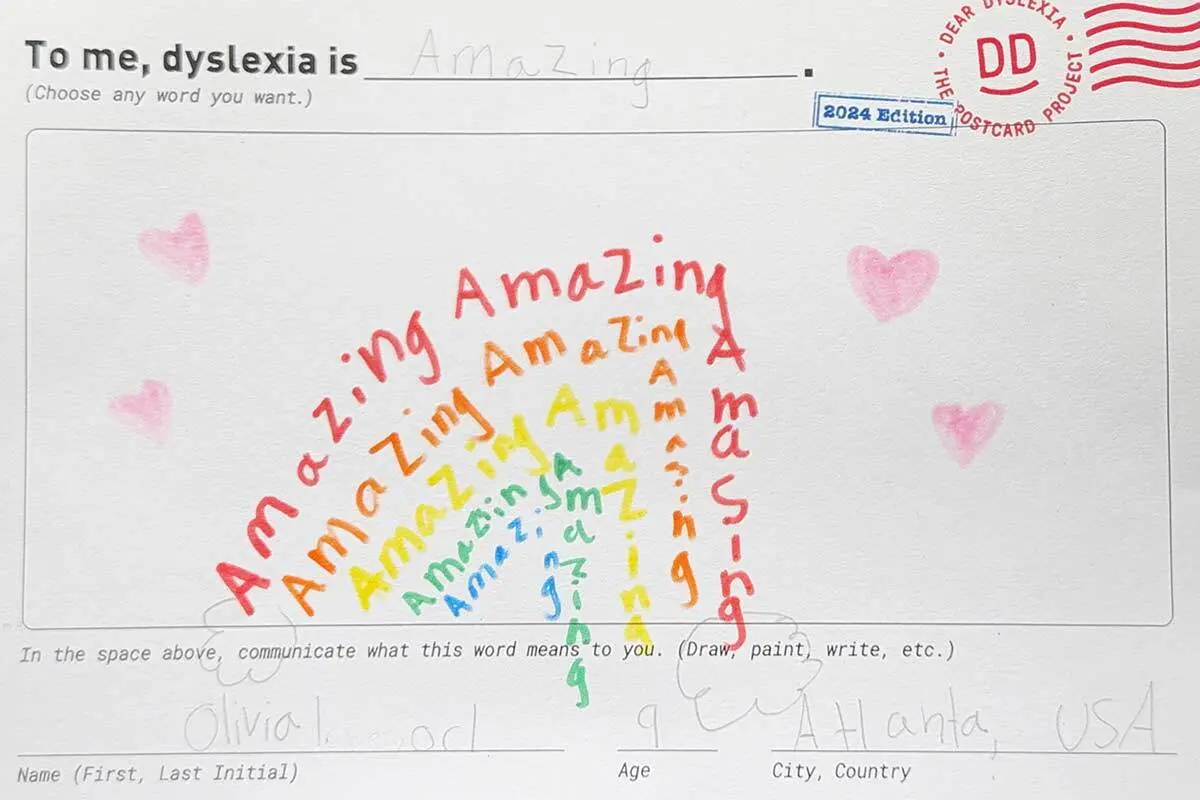 To me, dyslexia is Amazing.
(Choose any word you want.)
DEAR DYSLEXIA • THE POSTCARD PROJECT •
DD
2024 Edition
Amazing Amazing Amasing
Amazing Amazing Amazing
Amazing Amazing
Amazing Amazing
Amazing
In the space above, communicate what this word means to you. (Draw, paint, write, etc.)
Olivia 9 Atlanta, USA
Name (First, Last Initial) Age City, Country